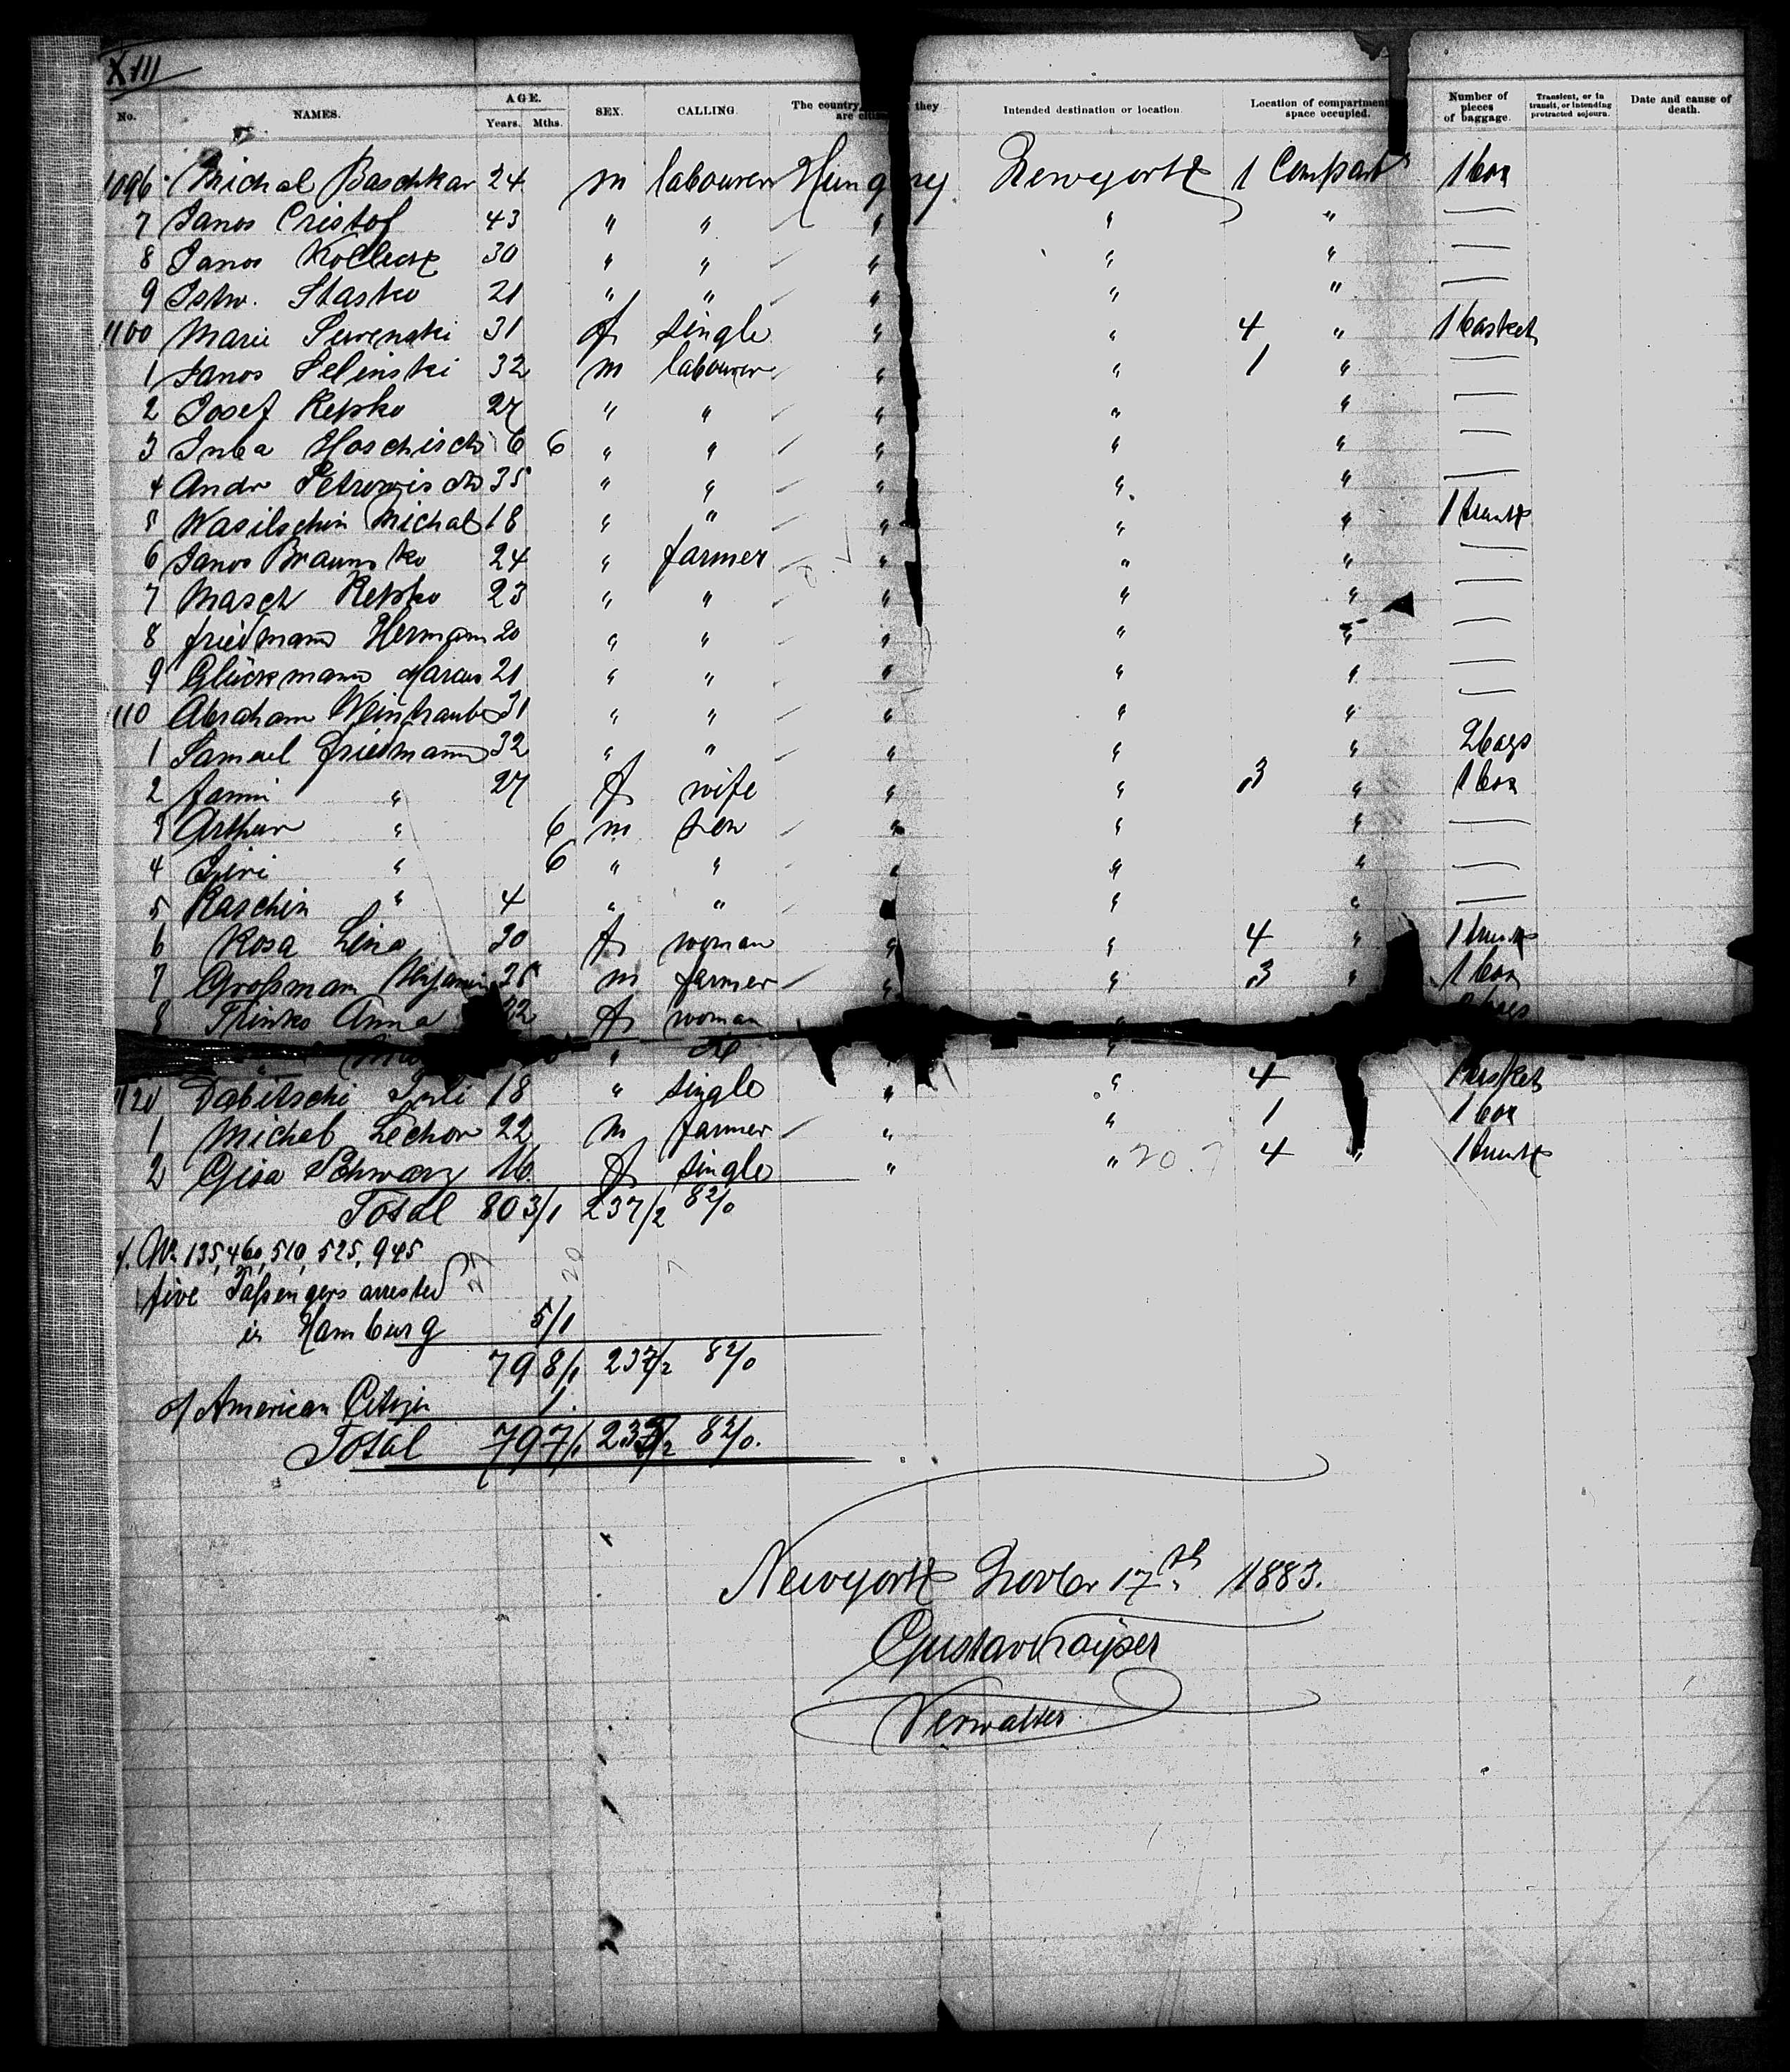 XIII
No. NAMES. AGE. Years. Mths. SEX. CALLING. The country they are Intended destination or location. Location of compartment space occupied. Number of pieces of baggage. Transient, or in transit, or intending protracted sojourn. Date and cause of death.
1096 Michal Baschkar 24 m labourer Hungary Newyork 1 Compart 1 box
7 Janos Cristof 43 " " " " " —
8 Janos 30 " " " " " —
9 Istw. Stasko 21 " " " " " —
1100 Marie 31 f single " " 4 " 1 basket
1 Janos Selinski 32 m labourer " " 1 " —
2 Josef Repko 27 " " " " " —
3 Hoschisch 6 6 " " " " " —
4 Andr 35 " " " " " —
5 Wasilschin Michal 18 " " " " " 1 trunk
6 Janos 24 " farmer " " " —
7 Masch Repko 23 " " " " " —
8 friedmann Hermann 20 " " " " " —
9 Glückmann Marcus 21 " " " " " —
110 Abraham Weintraub 31 " " " " " —
1 Samuel friedmann 32 " " " " " 2 bags
2 fanni " 27 f wife " " 3 " 1 box
3 Arthur " 6 m son " " " —
4 " 6 " " " " " —
5 Raschin " 4 " " " " " —
6 Rosa Lina 30 f woman " " 4 " 1 trunk
7 Großmann m farmer " " 3 " 1 box
8 Anna 22 f woman "
" "
1120 Dabitschi Juli 18 " single " " 4 1 basket
1 Michel Lechor 22 m farmer " " 1 1 box
2 Gisa Schwarz 16 f single " " 4 " 1 trunk
Total 803/1 237/2 82/0
No. 135, 460, 510, 525, 945
five Passengers arrested
in Hamburg 5/1
798/1 237/2 82/0
of American Citizen 1
Total 797/1 82/0.
Newyork Novbr 17th 1883.
Gustav
Verwalter